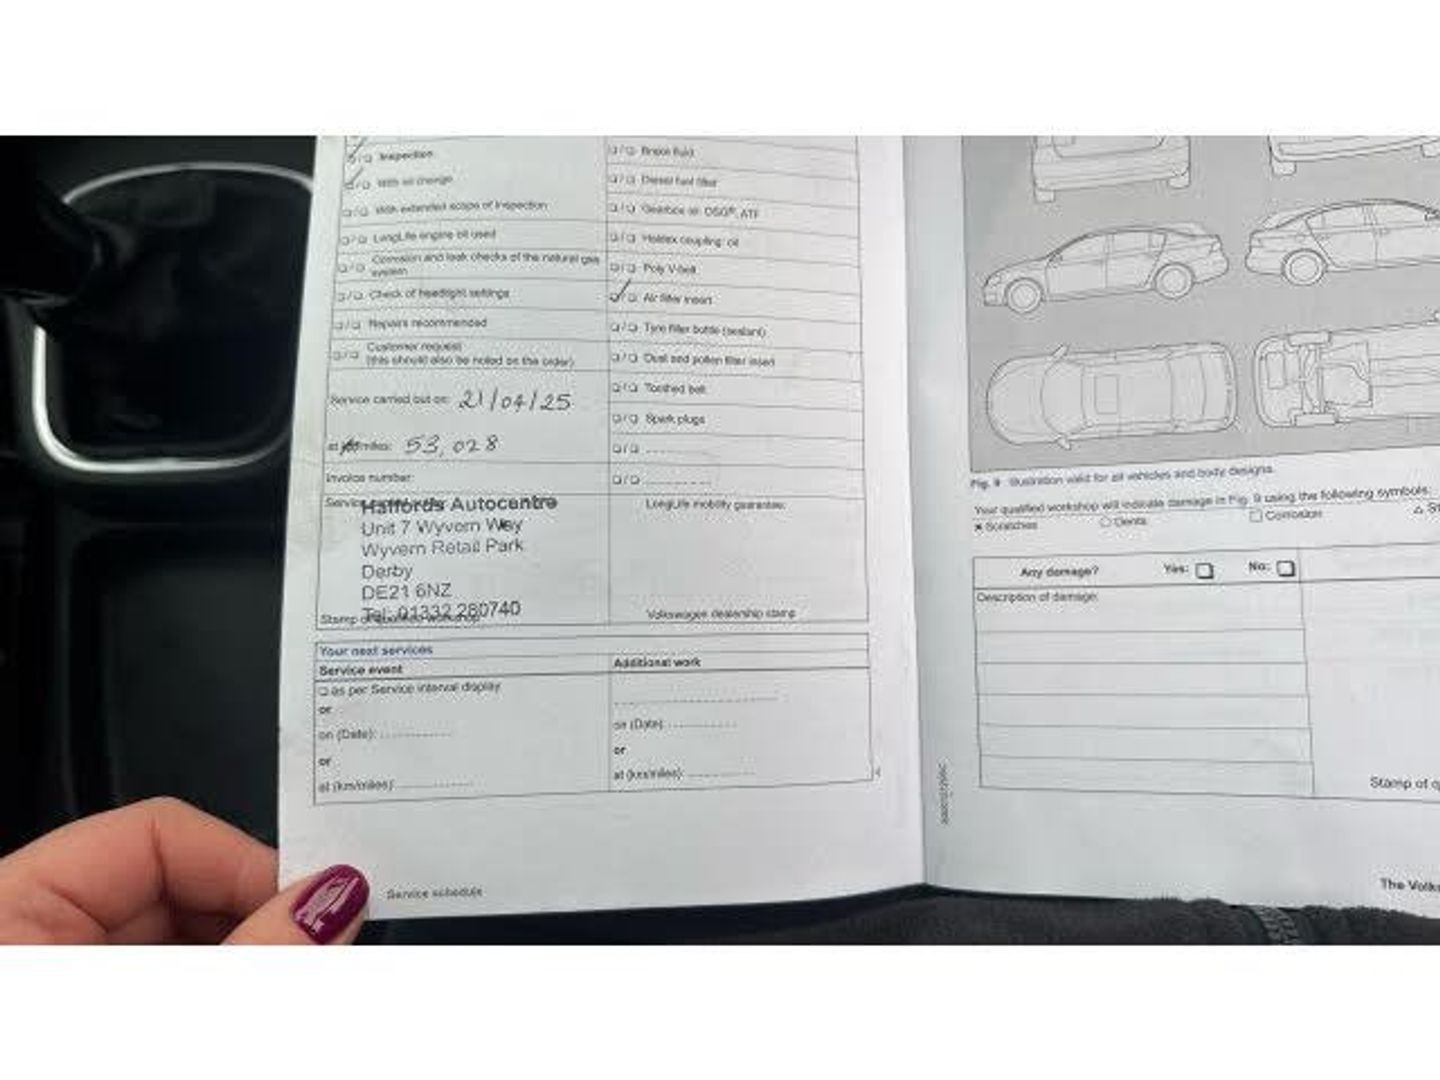 Inspection
With oil change
With extended scope of Inspection
LongLife engine oil used
Corrosion and leak checks of the natural gas
system
Check of headlight settings
Repairs recommended
Customer request
(this should also be noted on the order)
Service carried out on: 21/04/25
at km/miles: 53,028
Invoice number:
Halfords Autocentre
Unit 7 Wyvern Way
Wyvern Retail Park
Derby
DE21 6NZ
Tel: 01332 280740
Stamp of qualified workshop
Brake fluid
Diesel fuel filter
Gearbox oil: DSG®, ATF
Haldex coupling: oil
Poly V-belt
Air filter insert
Tyre filler bottle (sealant)
Dust and pollen filter insert
Toothed belt
Spark plugs
LongLife mobility guarantee:
Volkswagen dealership stamp
Your next services
Service event
as per Service interval display
or
on (Date):
or
at (km/miles):
Additional work
on (Date):
or
at (km/miles):
Service schedule
Fig. 9 Illustration valid for all vehicles and body designs.
Your qualified workshop will indicate damage in Fig. 9 using the following symbols:
Scratches Dents Corrosion
Any damage? Yes: No:
Description of damage:
Stamp of q
The Volks